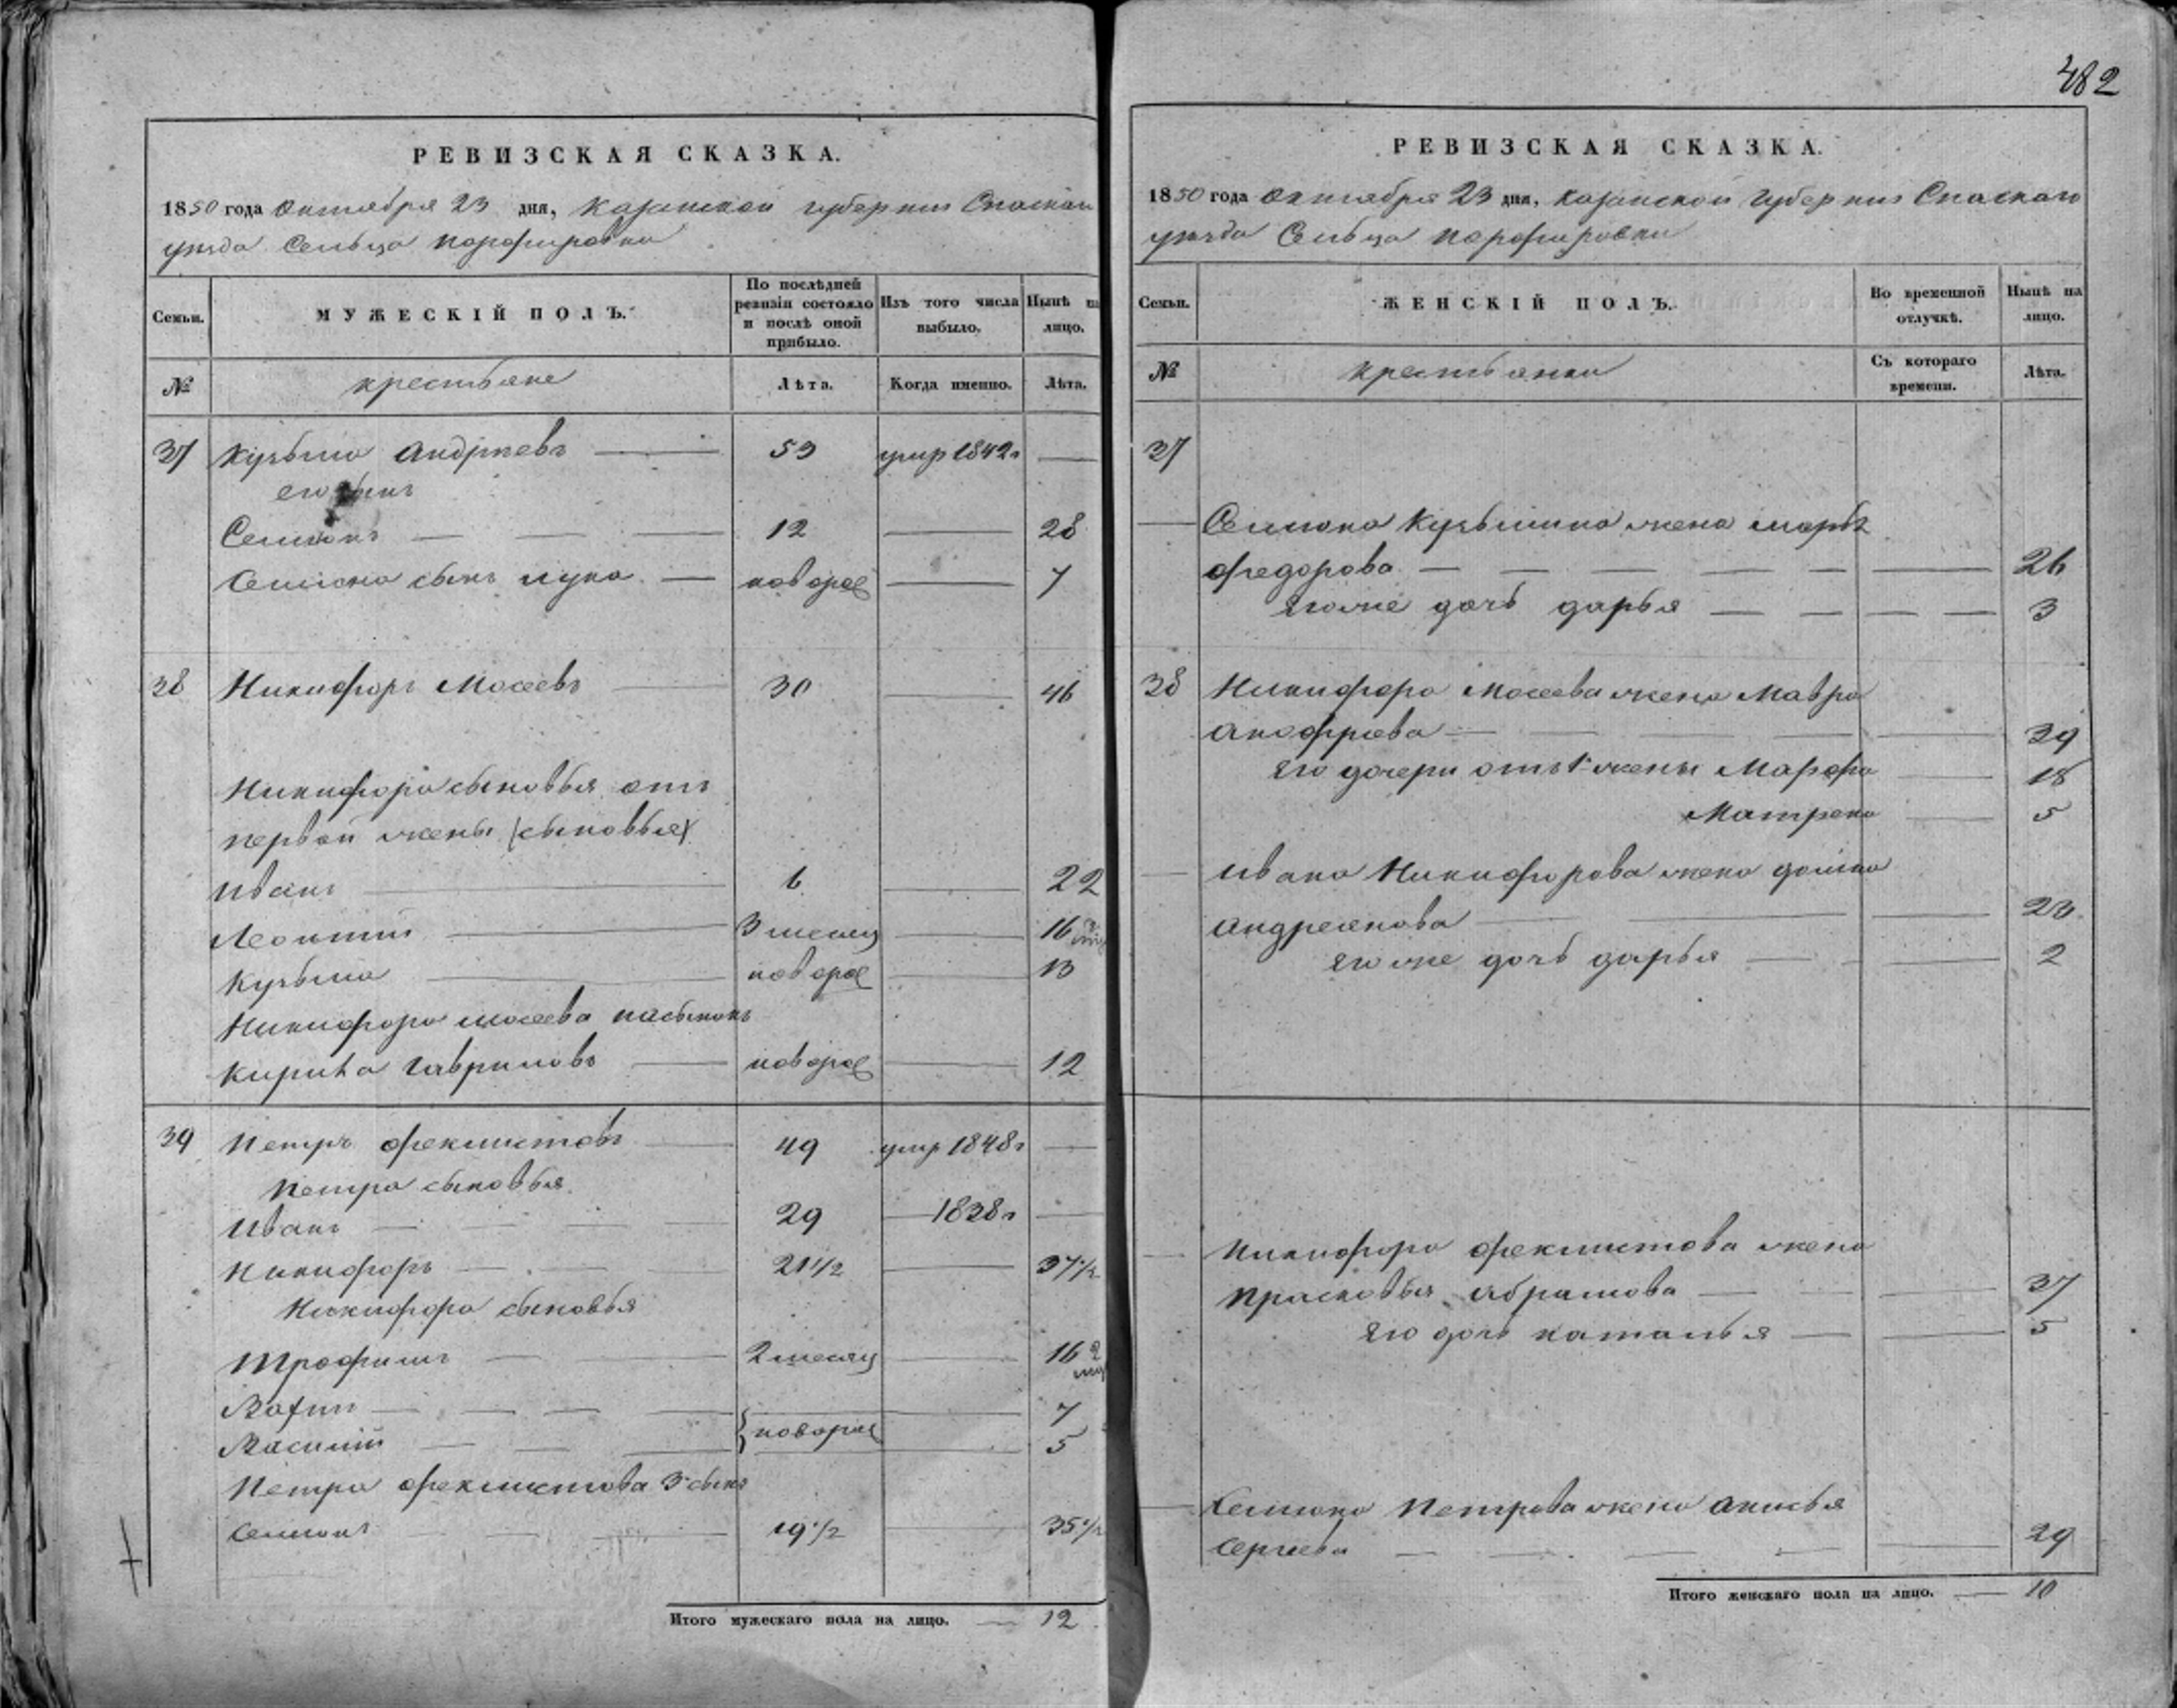 482
РЕВИЗСКАЯ СКАЗКА.
1850 года Октября 23 дня, Казанской губернии Спаскаго
уезда Сельца Порфировки
Семьи.
МУЖЕСКІЙ ПОЛЪ.
По послѣдней ревизіи состояло и послѣ оной прибыло.
Изъ того числа выбыло.
Нынѣ на лицо.
№
крестьяне
Лѣта.
Когда именно.
Лѣта.
37 Кузьма Андреевъ 53 умр 1842г
его сынъ
Семионъ 12 28
Семиона сынъ Лука новорож 7
38 Никифоръ Мосеевъ 30 46
Никифора сыновья отъ
первой жены (сыновья)
Иванъ 6 22
Леонтий 3 месяц 16 3
Кузьма новорож 13
Никифора Мосеева пасынокъ
Кирила Гавриловъ новорож 12
39 Петръ Феклистовъ 49 умр 1848г
Петра сыновья
Иванъ 29 1838г
Никифоръ 21 1/2 37 1/2
Никифора сыновья
Трофимъ 2 месяц 16 2
7
Василий новорож 5
Петра Феклистова 3й сынъ
Семионъ 19 1/2 35 1/2
Итого мужескаго пола на лицо. 12
РЕВИЗСКАЯ СКАЗКА.
1850 года Октября 23 дня, Казанской Губернии Спаскаго
уезда Сельца Порфировки
Семьи.
ЖЕНСКІЙ ПОЛЪ.
Во временной отлучкѣ.
Нынѣ на лицо.
№
крестьянки
Съ котораго времени.
Лѣта.
37
Семиона Кузьмина жена Марья
Федорова 26
Его же дочь Дарья 3
38 Никифора Мосеева жена Мавра
Анофриева 39
Его дочери отъ 1й жены Марфа 18
Матрена 5
Ивана Никифорова жена Домна
Андреянова 23
Его же дочь Дарья 2
Никифора Феклистова жена
Прасковья Абрамова 37
Его дочь Наталья 5
Семиона Петрова жена Анисья
Сергеева 29
Итого женскаго пола на лицо. 10